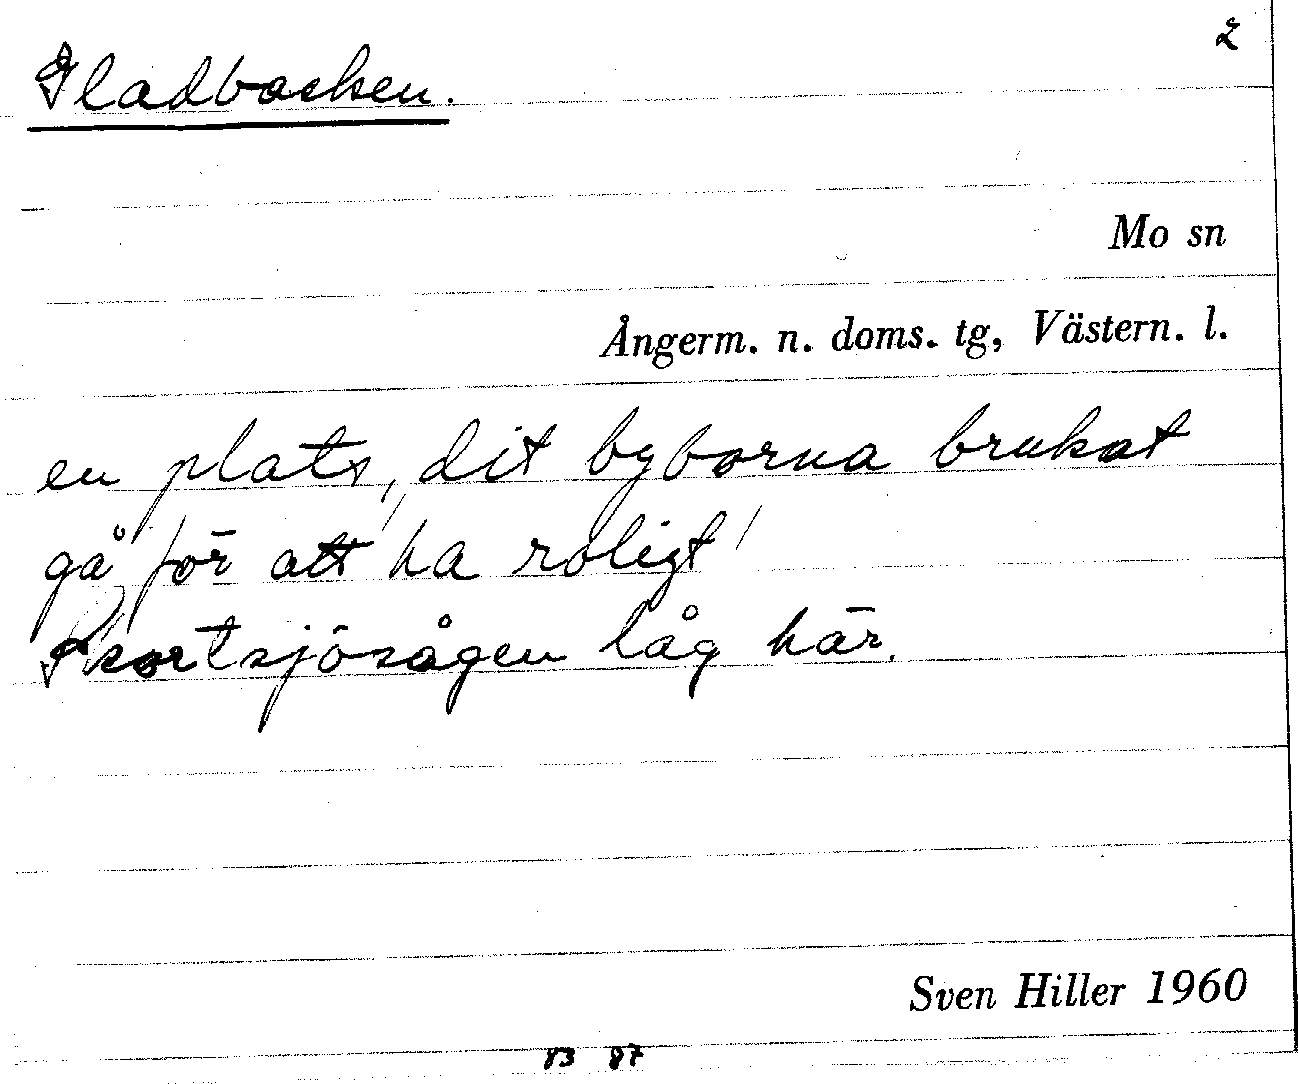 2
Gladbacken.
Mo sn
Ångerm. n. doms. tg, Västern. l.
en plats, dit byborna brukat
gå för att ha roligt!
låg här.
Sven Hiller 1960
83 87